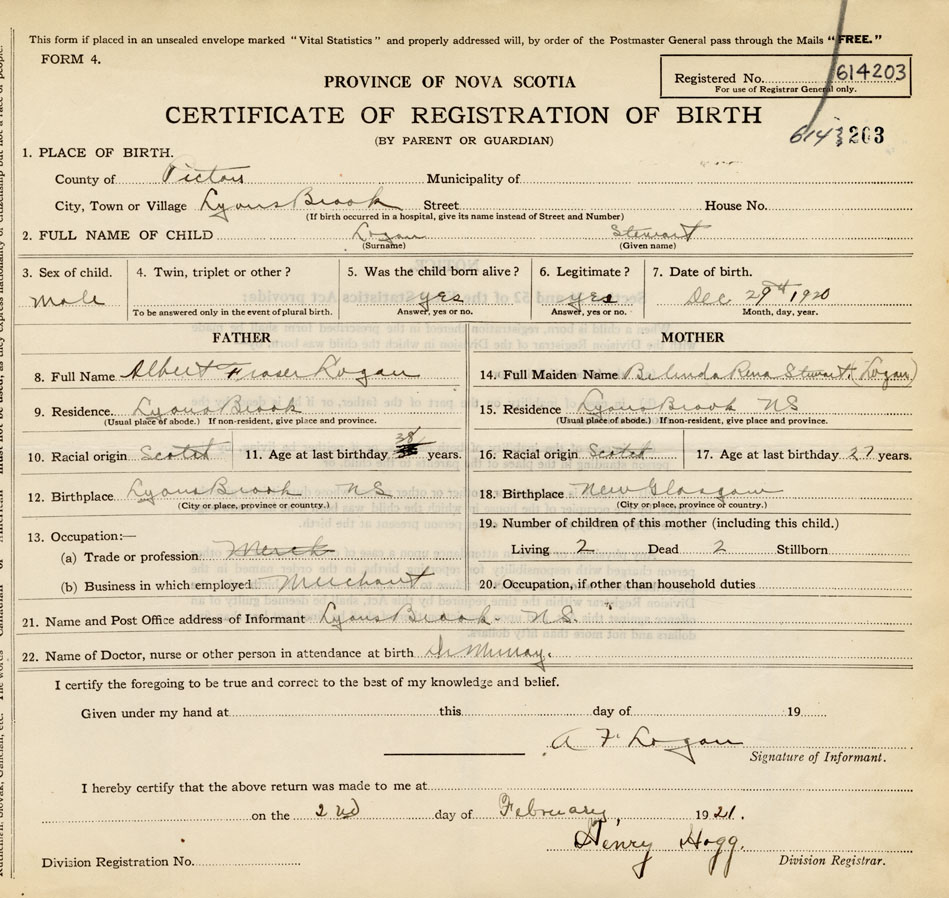 This form if placed in an unsealed envelope marked "Vital Statistics" and properly addressed will, by order of the Postmaster General pass through the Mails "FREE."
FORM 4.
PROVINCE OF NOVA SCOTIA
Registered No. 614203
For use of Registrar General only.
CERTIFICATE OF REGISTRATION OF BIRTH
(BY PARENT OR GUARDIAN)
203
1. PLACE OF BIRTH.
County of Pictou Municipality of
City, Town or Village Lyons Brook Street House No.
(If birth occurred in a hospital, give its name instead of Street and Number)
2. FULL NAME OF CHILD Logan Stewart
(Surname) (Given name)
3. Sex of child. 4. Twin, triplet or other? 5. Was the child born alive? 6. Legitimate? 7. Date of birth.
male yes yes Dec 29th 1920
To be answered only in the event of plural birth. Answer, yes or no. Answer, yes or no. Month, day, year.
FATHER
8. Full Name Albert Fraser Logan
9. Residence. Lyons Brook
(Usual place of abode.) If non-resident, give place and province.
10. Racial origin Scotch 11. Age at last birthday 38 years.
12. Birthplace Lyons Brook NS
(City or place, province or country.)
13. Occupation:—
(a) Trade or profession. Merch
(b) Business in which employed Merchant
MOTHER
14. Full Maiden Name Belinda Rena Stewart (Logan)
15. Residence Lyons Brook NS
(Usual place of abode.) If non-resident, give place and province.
16. Racial origin Scotch 17. Age at last birthday 27 years.
18. Birthplace New Glasgow
(City or place, province or country.)
19. Number of children of this mother (including this child.)
Living 2 Dead 2 Stillborn
20. Occupation, if other than household duties
21. Name and Post Office address of Informant Lyons Brook. N.S.
22. Name of Doctor, nurse or other person in attendance at birth Dr Murray.
I certify the foregoing to be true and correct to the best of my knowledge and belief.
Given under my hand at this day of 19
A F Logan
Signature of Informant.
I hereby certify that the above return was made to me at
on the 2nd day of February, 1921.
Henry Hogg.
Division Registration No. Division Registrar.